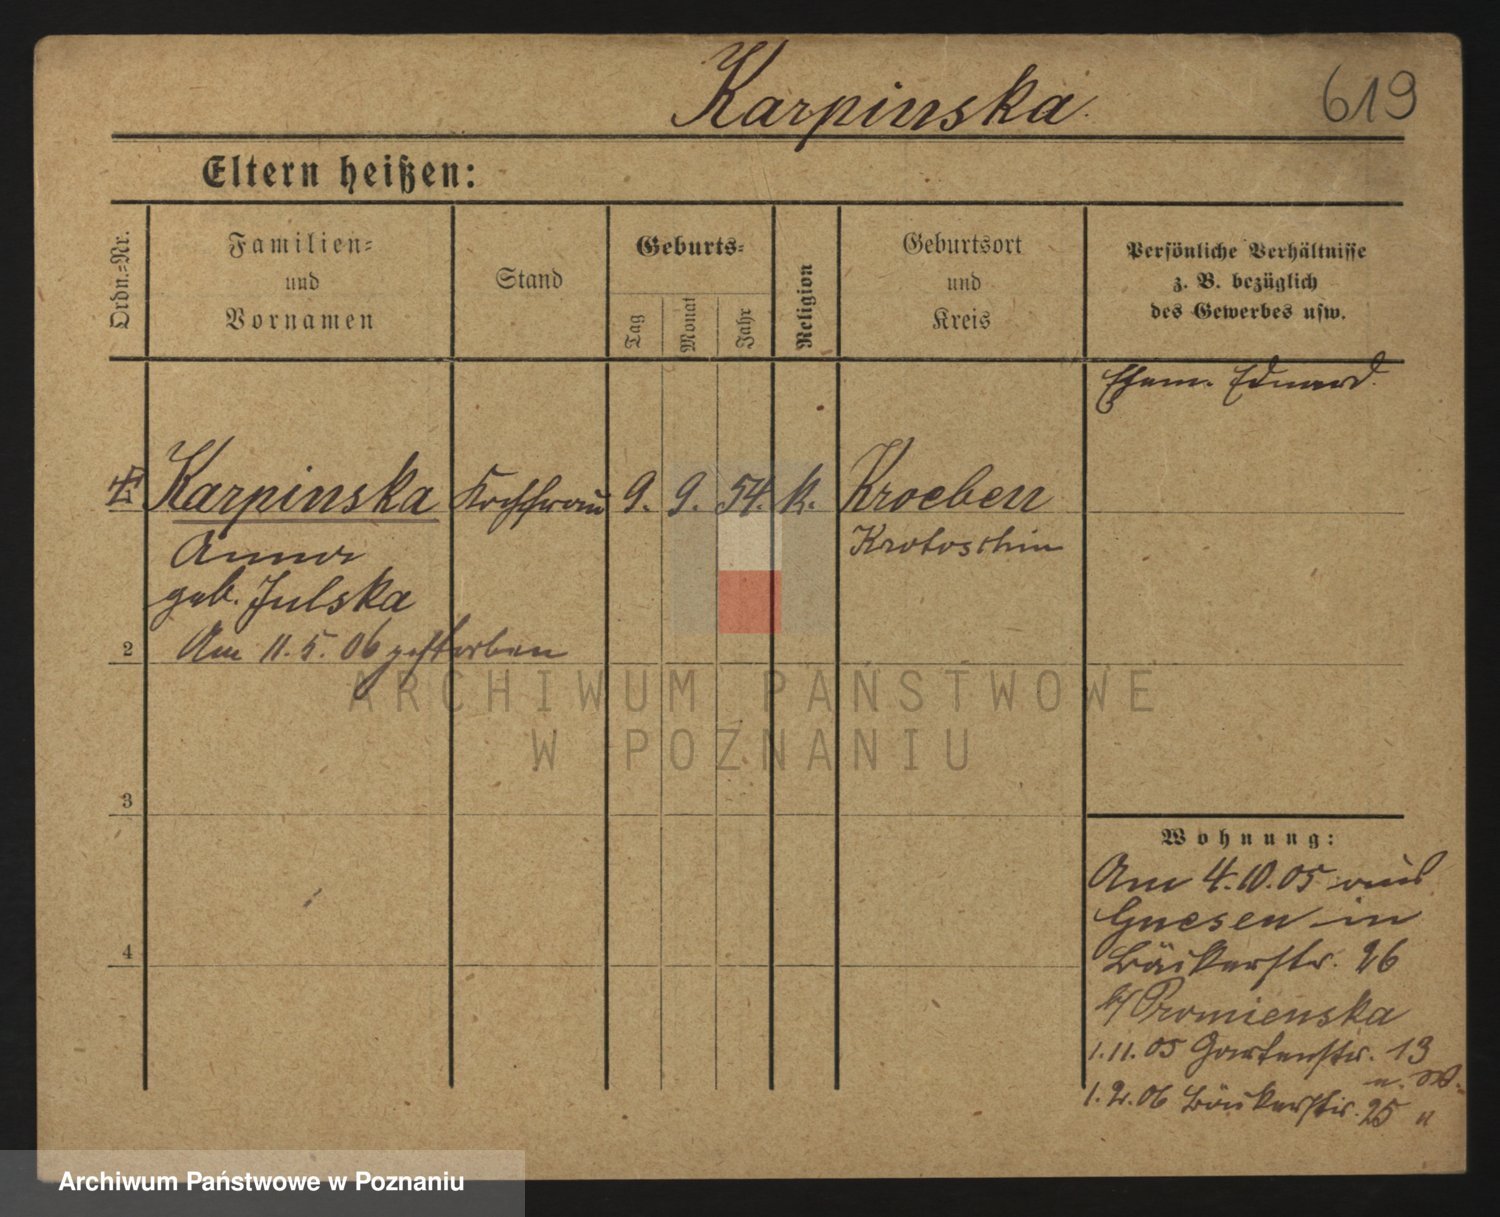 Karpinska
619
Eltern heißen:
Ordn.-Nr.
Familien-
und
Vornamen
Stand
Geburts-
Tag
Monat
Jahr
Religion
Geburtsort
und
Kreis
Persönliche Verhältnisse
z. B. bezüglich
des Gewerbes usw.
Ehem. Eduard.
Karpinska Kochfrau 9. 9. 54. k. Kroeben
Anna Krotoschin
geb. Julska
2 Am 11. 5. 06 gestorben
3
4
Wohnung:
Am 4.10.05 aus
Gnesen in
Bäckerstr. 26
b/ Promienska
1.11.05 Gartenstr. 13
u. W.
1.2.06 Bäckerstr. 25 "
ARCHIWUM PAŃSTWOWE
W POZNANIU
Archiwum Państwowe w Poznaniu